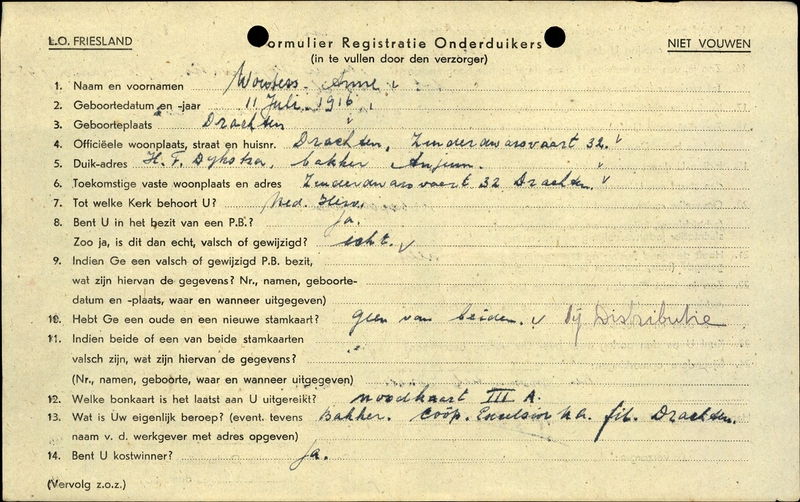 L.O. FRIESLAND
Formulier Registratie Onderduikers
NIET VOUWEN
(in te vullen door den verzorger)
1. Naam en voornamen Wouters. Anne
2. Geboortedatum en -jaar 11 Juli. 1916
3. Geboorteplaats Drachten
4. Officiëele woonplaats, straat en huisnr. Drachten, Zuiderdwarsvaart 32.
5. Duik-adres H. F. Dykstra, bakker Anjum.
6. Toekomstige vaste woonplaats en adres Zuiderdwarsvaart 32 Drachten.
7. Tot welke Kerk behoort U? Ned. Herv.
8. Bent U in het bezit van een P.B.? Ja.
Zoo ja, is dit dan echt, valsch of gewijzigd? echt.
9. Indien Ge een valsch of gewijzigd P.B. bezit,
wat zijn hiervan de gegevens? Nr., namen, geboorte-
datum en -plaats, waar en wanneer uitgegeven)
10. Hebt Ge een oude en een nieuwe stamkaart? Geen van beiden. bij Distributie
11. Indien beide of een van beide stamkaarten
valsch zijn, wat zijn hiervan de gegevens?
(Nr., namen, geboorte, waar en wanneer uitgegeven)
12. Welke bonkaart is het laatst aan U uitgereikt? noodkaart III A.
13. Wat is Uw eigenlijk beroep? (event. tevens Bakker. Coöp. Excelsior fil. Drachten.
naam v. d. werkgever met adres opgeven)
14. Bent U kostwinner? Ja.
(Vervolg z.o.z.)